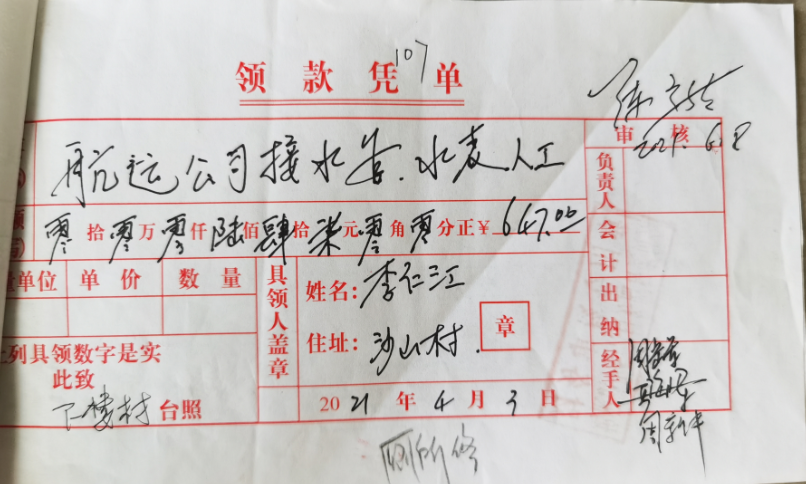 领款凭单
107
审核
2021.6.8
航运公司接水管.水表人工
零拾零万零仟陆佰肆拾柒元零角零分正¥647.00
单位 单价 数量
具领人盖章
姓名:李仁江
住址:沙山村.
章
列具领数字是实
此致
下楼村台照
2021年4月3日
负责人
会计
出纳
经手人
周新华
厕所修